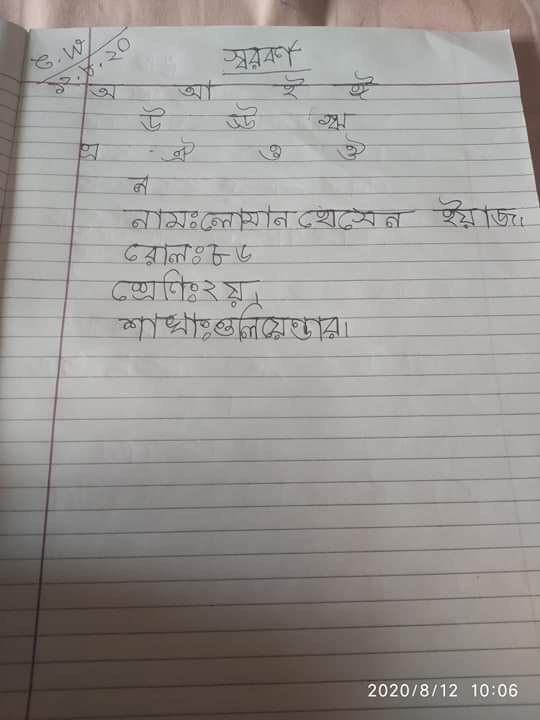 C.W
12.8.20
স্বরবর্ণ
অ আ ই ঈ
উ ঊ ঋ
এ ঐ ও ঔ
ন
নামঃলোমান হোসেন ইয়াজ।
রোলঃ৮৬
শ্রেণিঃ২য়।
শাখাঃওলিয়েন্ডার।
2020/8/12 10:06